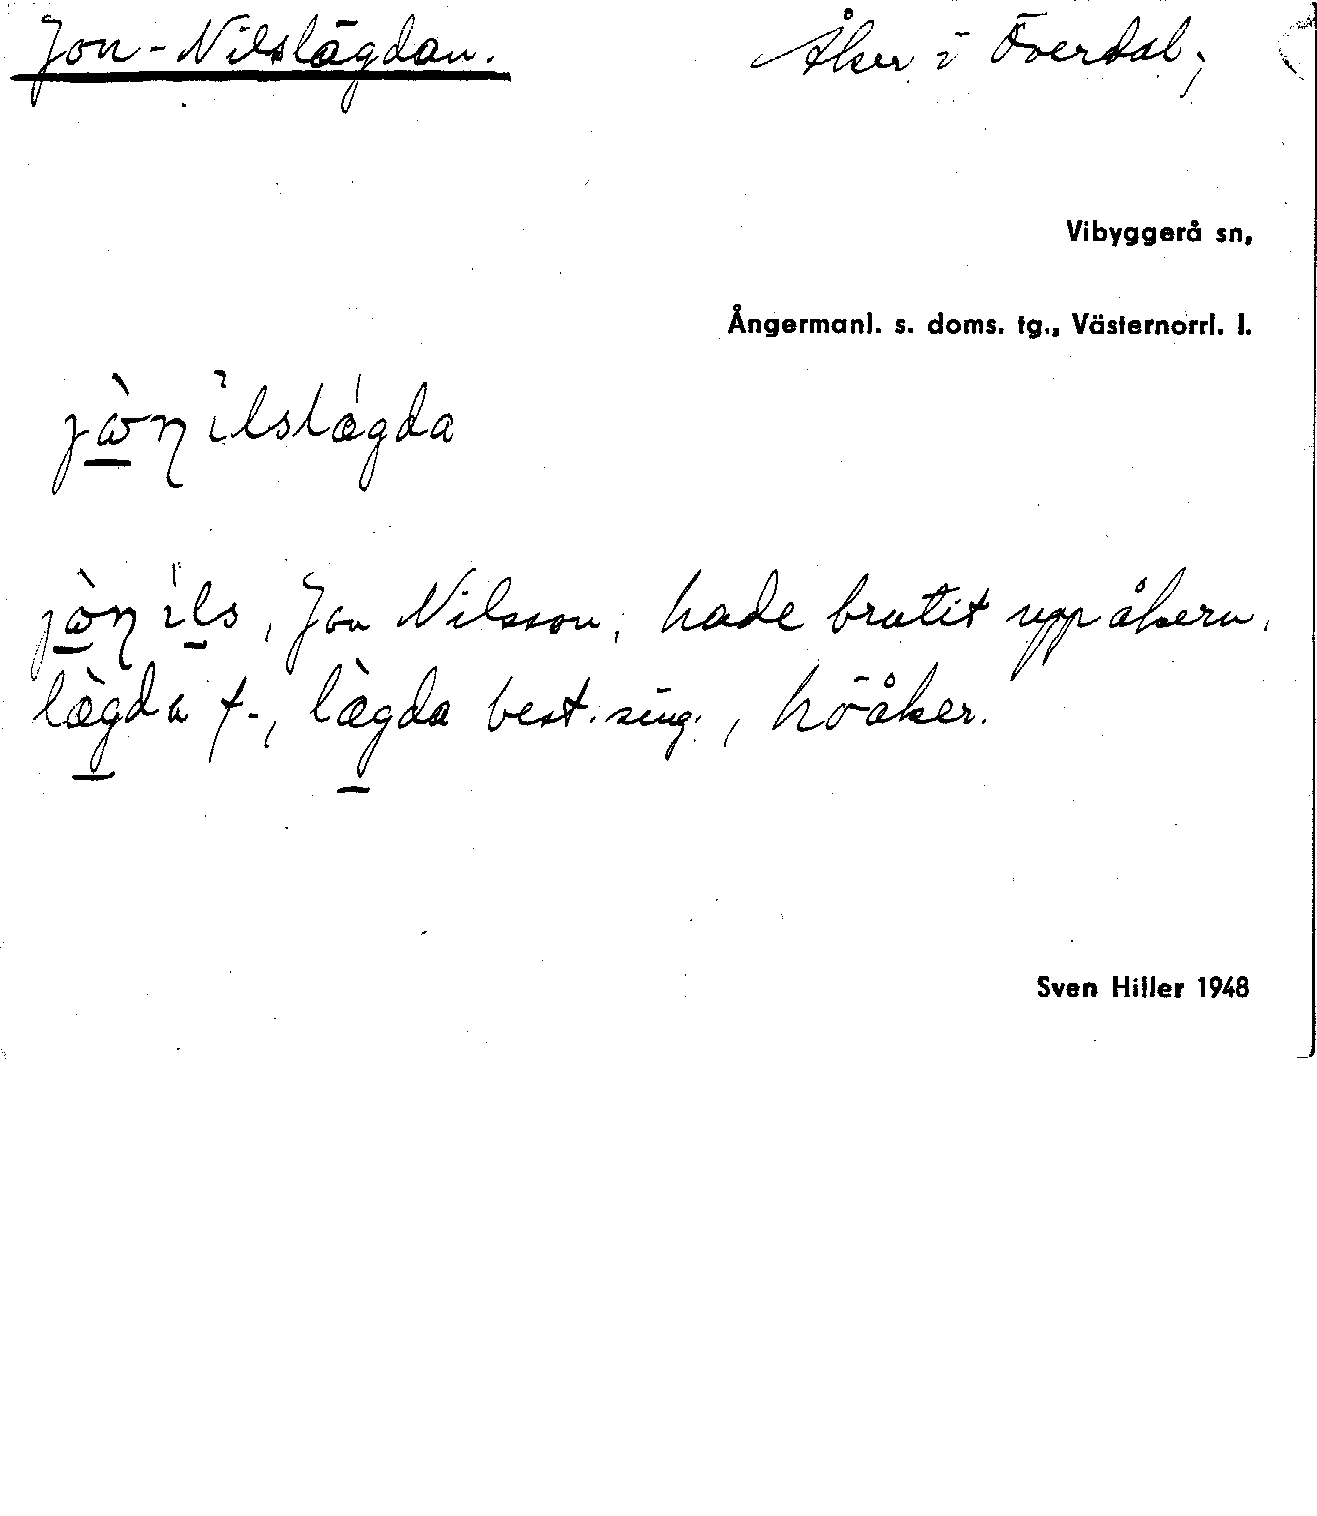 Jon-Nilslägdan. Åker i Överdal,
Vibyggerå sn,
Ångermanl. s. doms. tg., Västernorrl. l.
jὼŋilslǽgda
jὼŋ ils, Jon Nilsson, hade brutit upp åkern.
lægda f., lægda best. sing., höåker.
Sven Hiller 1948